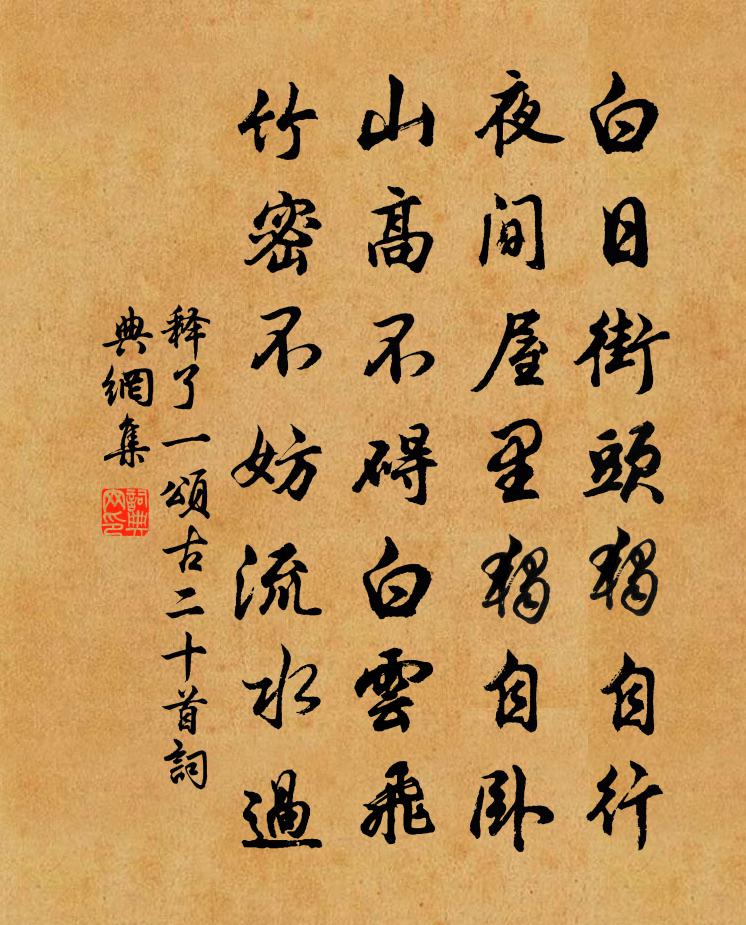 白日街頭獨自行
夜间屋里獨自卧
山高不碍白雲飛
竹密不妨流水過
释了一頌古二十首詞
典網集
詞典
网印